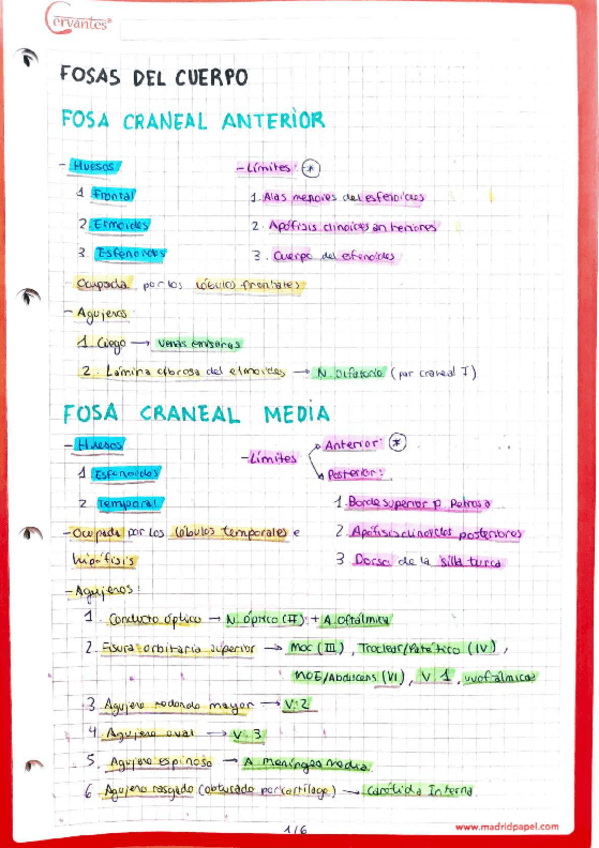 Cervantes®
FOSAS DEL CUERPO
FOSA CRANEAL ANTERIOR
- Huesos
1 Frontal
2 Etmoides
3. Esfenoides
- Límites: *
1. Alas menores del esfenoides
2. Apófisis clinoides anteriores
3. Cuerpo del esfenoides
- Ocupada por los lóbulos frontales
- Agujeros
1. Ciego → venas emisoras
2. Lámina cribosa del etmoides → N. Olfatorio (par craneal I)
FOSA CRANEAL MEDIA
- Huesos
1 Esfenoides
2 Temporal
- Límites
Anterior: *
Posterior:
1. Borde superior p. Petrosa
2. Apófisis clinoides posteriores
3 Dorso de la silla turca
- Ocupada por los lóbulos temporales e
hipófisis
- Agujeros:
1. Conducto óptico → N. óptico (II) + A oftálmica
2. Fisura orbitaria superior → MOC (III), Troclear/Patético (IV),
MOE/Abducens (VI), V 1, vv oftálmicas
3 Agujero redondo mayor → V.2
4 Agujero oval → V.3
5. Agujero espinoso → A meníngea media
6 Agujero rasgado (obturado por cartílago) → Carótida Interna
1/6
www.madridpapel.com